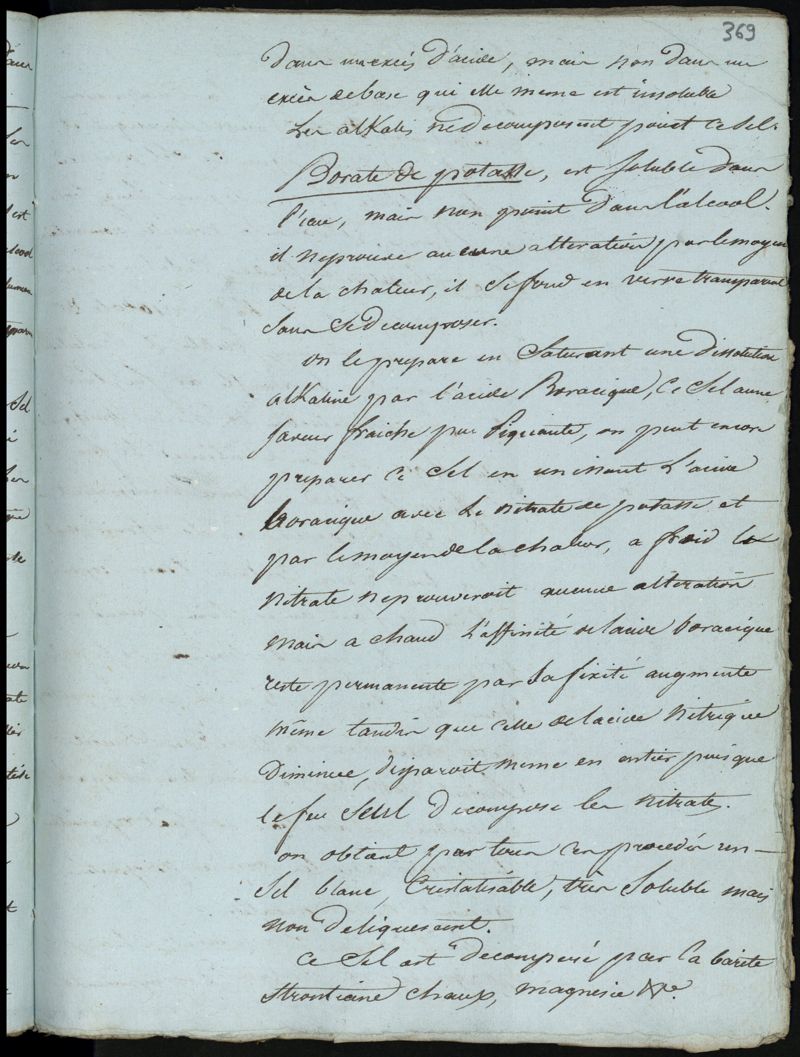 369
dans un excés d'acide, mais non dans un
excès de base qui elle meme est insoluble
Les alKalis ne decomposent point ce sel.
Borate de potasse, est soluble dans
l'eau, mais non point dans l'alcool.
il n'eprouve aucune alteration par le moyen
de la chaleur, il se fond en verre transparent
sans se decomposer.
on le prepare en saturant une dissolution
alKaline par l'acide Boracique, ce sel a une
saveur fraiche peu piquante, on peut encore
preparer ce sel en unissant l'acide
boracique avec le nitrate de potasse et
par le moyen de la chaleur, a froid le
nitrate n'eprouveroit aucune alteration
mais a chaud l'affinité de lacide boracique
reste permanente par sa fixité augmente
même tandis que celle de lacide nitrique
diminue, disparoit même en entier puisque
le feu seul decompose les nitrates.
on obtient par tous ces procedés un
sel blanc, cristalisable, très soluble mais
non deliquescent.
ce sel est decomposé par la barite
strontiane chaux, magnesie &c.